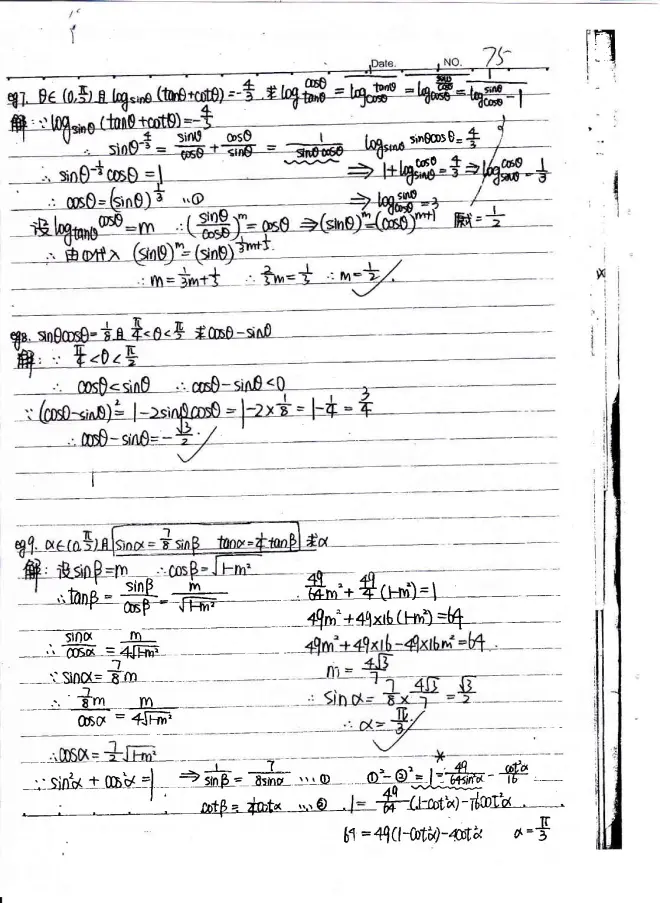 Date. NO. 75
eg7. θ∈(0,π/2)且 log_sinθ (tanθ+cotθ)=-4/3. 求log_tanθ cosθ = 1/log_cosθ tanθ = 1/log_cosθ (sinθ/cosθ) = 1/(log_cosθ sinθ - 1)
解:∵log_sinθ (tanθ+cotθ)=-4/3
∴ sinθ^(-4/3) = sinθ/cosθ + cosθ/sinθ = 1/(sinθcosθ) log_sinθ sinθcosθ=4/3
∴ sinθ^(1/3) cosθ=1 ⇒ 1+log_sinθ cosθ=4/3 ⇒ log_sinθ cosθ=1/3
∴ cosθ=(sinθ)^(1/3) …① ⇒ log_cosθ sinθ=3
设log_tanθ cosθ=m ∴(sinθ/cosθ)^m=cosθ ⇒(sinθ)^m=(cosθ)^(m+1) 原式=1/2
∴ 由①代入 (sinθ)^m=(sinθ)^(1/3m+1/3).
∴m=1/3m+1/3 ∴2/3m=1/3 ∴m=1/2.
eg8. sinθcosθ=1/8且 π/4<θ<π/2 求cosθ-sinθ
解:∵ π/4<θ<π/2
∴ cosθ<sinθ ∴cosθ-sinθ<0
∵(cosθ-sinθ)²=1-2sinθcosθ=1-2×1/8=1-1/4=3/4
∴cosθ-sinθ=-√3/2.
eg9. α∈(0,π/2)且 sinα=7/8 sinβ tanα=1/4 tanβ 求α
解:设sinβ=m ∴cosβ=√(1-m²)
∴tanβ=sinβ/cosβ=m/√(1-m²)
∴ sinα/cosα = m/(4√(1-m²))
∵sinα=7/8m
∴ (7/8m)/cosα = m/(4√(1-m²))
∴cosα=7/2√(1-m²)
∵sin²α+cos²α=1
49/64m²+49/4(1-m²)=1
49m²+49×16(1-m²)=64
49m²+49×16-49×16m²=64.
m=4√3/7
∴ sinα=7/8×4√3/7=√3/2
∴α=π/3.
⇒ 1/sinβ=7/(8sinα) …① ①²-②²=1=49/(64sin²α)-cot²α/16
cotβ=1/4cotα …② 1=49/64(1-cot²α)-1/16cot²α
64=49(1-cot²α)-4cot²α α=π/3